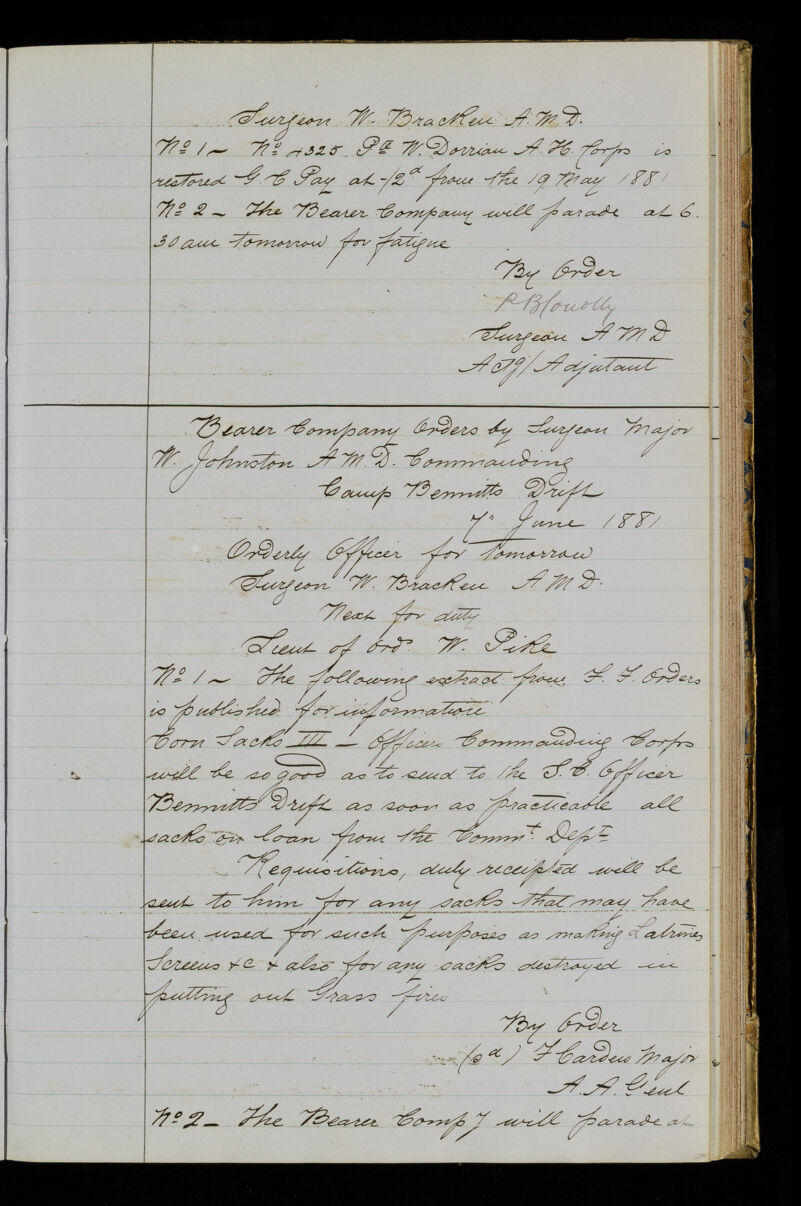 Surgeon W. Bracken A.M.D.
No 1 – No 4325. Pte W. Dorrian A. H. Corps is
restored G. C Pay at -/2d from the 19 May 1881
No 2 – The Bearer Company will parade at 6.
30 am tomorrow for fatigue
By Order
P B Conolly
Surgeon A M D
Actg/Adjutant
Bearer Company Orders by Surgeon Major
W. Johnston A.M.D. Commanding
Camp Bennitts Drift
7" June 1881
Orderly Officer for tomorrow
Surgeon W. Bracken A M D.
Next for duty
Lieut of Ord. W. Pike
No 1 – The following extract from F. F. Orders
is published for information
Corn Sacks III – Officers Commanding Corps
will be so good as to send to the S. C. Officer
Bennitts Drift as soon as practicable all
sacks on loan from the Commt. Dept
Requisitions, duly receipted will be
sent to him for any sacks that may have
been used for such purposes as making Latrines
Screens &c & also for any sacks destroyed in
putting out Grass fires
By Order
(sd) F Cardew Major
A. A. Genl
No 2 – The Bearer Compy will parade at